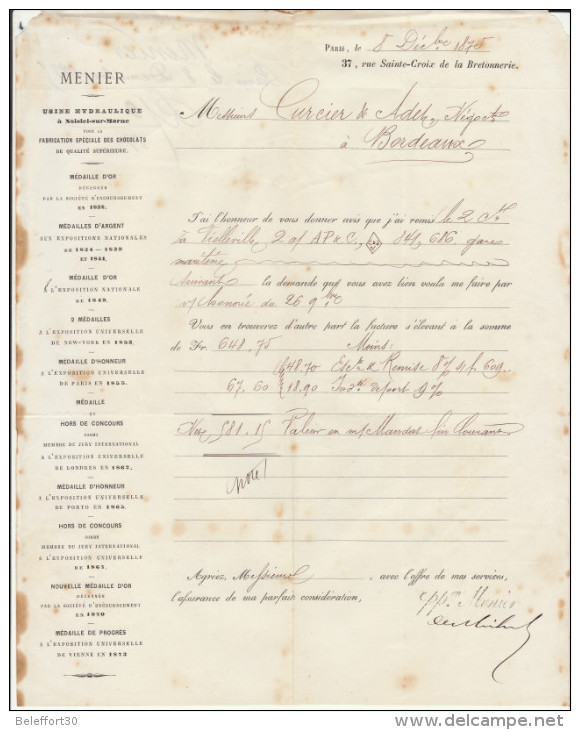 Paris, le 8 Décbre 1875
37, rue Sainte-Croix de la Bretonnerie.
MENIER
USINE HYDRAULIQUE
à Noisiel-sur-Marne
POUR LA
FABRICATION SPÉCIALE DES CHOCOLATS
DE QUALITÉ SUPÉRIEURE.
MÉDAILLE D'OR
DÉCERNÉE
PAR LA SOCIÉTÉ D'ENCOURAGEMENT
EN 1832.
MÉDAILLES D'ARGENT
AUX EXPOSITIONS NATIONALES
DE 1834 — 1839
ET 1844.
MÉDAILLE D'OR
A L'EXPOSITION NATIONALE
DE 1849.
2 MÉDAILLES
A L'EXPOSITION UNIVERSELLE
DE NEW-YORK EN 1853.
MÉDAILLE D'HONNEUR
A L'EXPOSITION UNIVERSELLE
DE PARIS EN 1855.
MÉDAILLE
ET
HORS DE CONCOURS
COMME
MEMBRE DU JURY INTERNATIONAL
A L'EXPOSITION UNIVERSELLE
DE LONDRES EN 1862.
MÉDAILLE D'HONNEUR
A L'EXPOSITION UNIVERSELLE
DE PORTO EN 1865.
HORS DE CONCOURS
COMME
MEMBRE DU JURY INTERNATIONAL
A L'EXPOSITION UNIVERSELLE
DE 1867.
NOUVELLE MÉDAILLE D'OR
DÉCERNÉE
PAR LA SOCIÉTÉ D'ENCOURAGEMENT
EN 1870
MÉDAILLE DE PROGRÈS
A L'EXPOSITION UNIVERSELLE
DE VIENNE EN 1873
Messieurs Curcier & Adet, Négocts
à Bordeaux
J'ai l'honneur de vous donner avis que j'ai remis le 2 Ct
à Vielleville, 2 cs AP&C, 841, 686 gare
maritime
suivant la demande que vous avez bien voulu me faire par
v/ honorée du 26 9bre
Vous en trouverez d'autre part la facture s'élevant à la somme
de Fr. 648.75 Moins:
48.70 Escte & Remise 8% s/ f. 609.
67.60 18.90 Indté de port 3%
Net 581.15 Valeur en m/ Mandat fin Courant
noté
Agréez, Messieurs, avec l'offre de mes services,
l'assurance de ma parfait considération,
ppon Menier
Beleffort30
delcampe.net